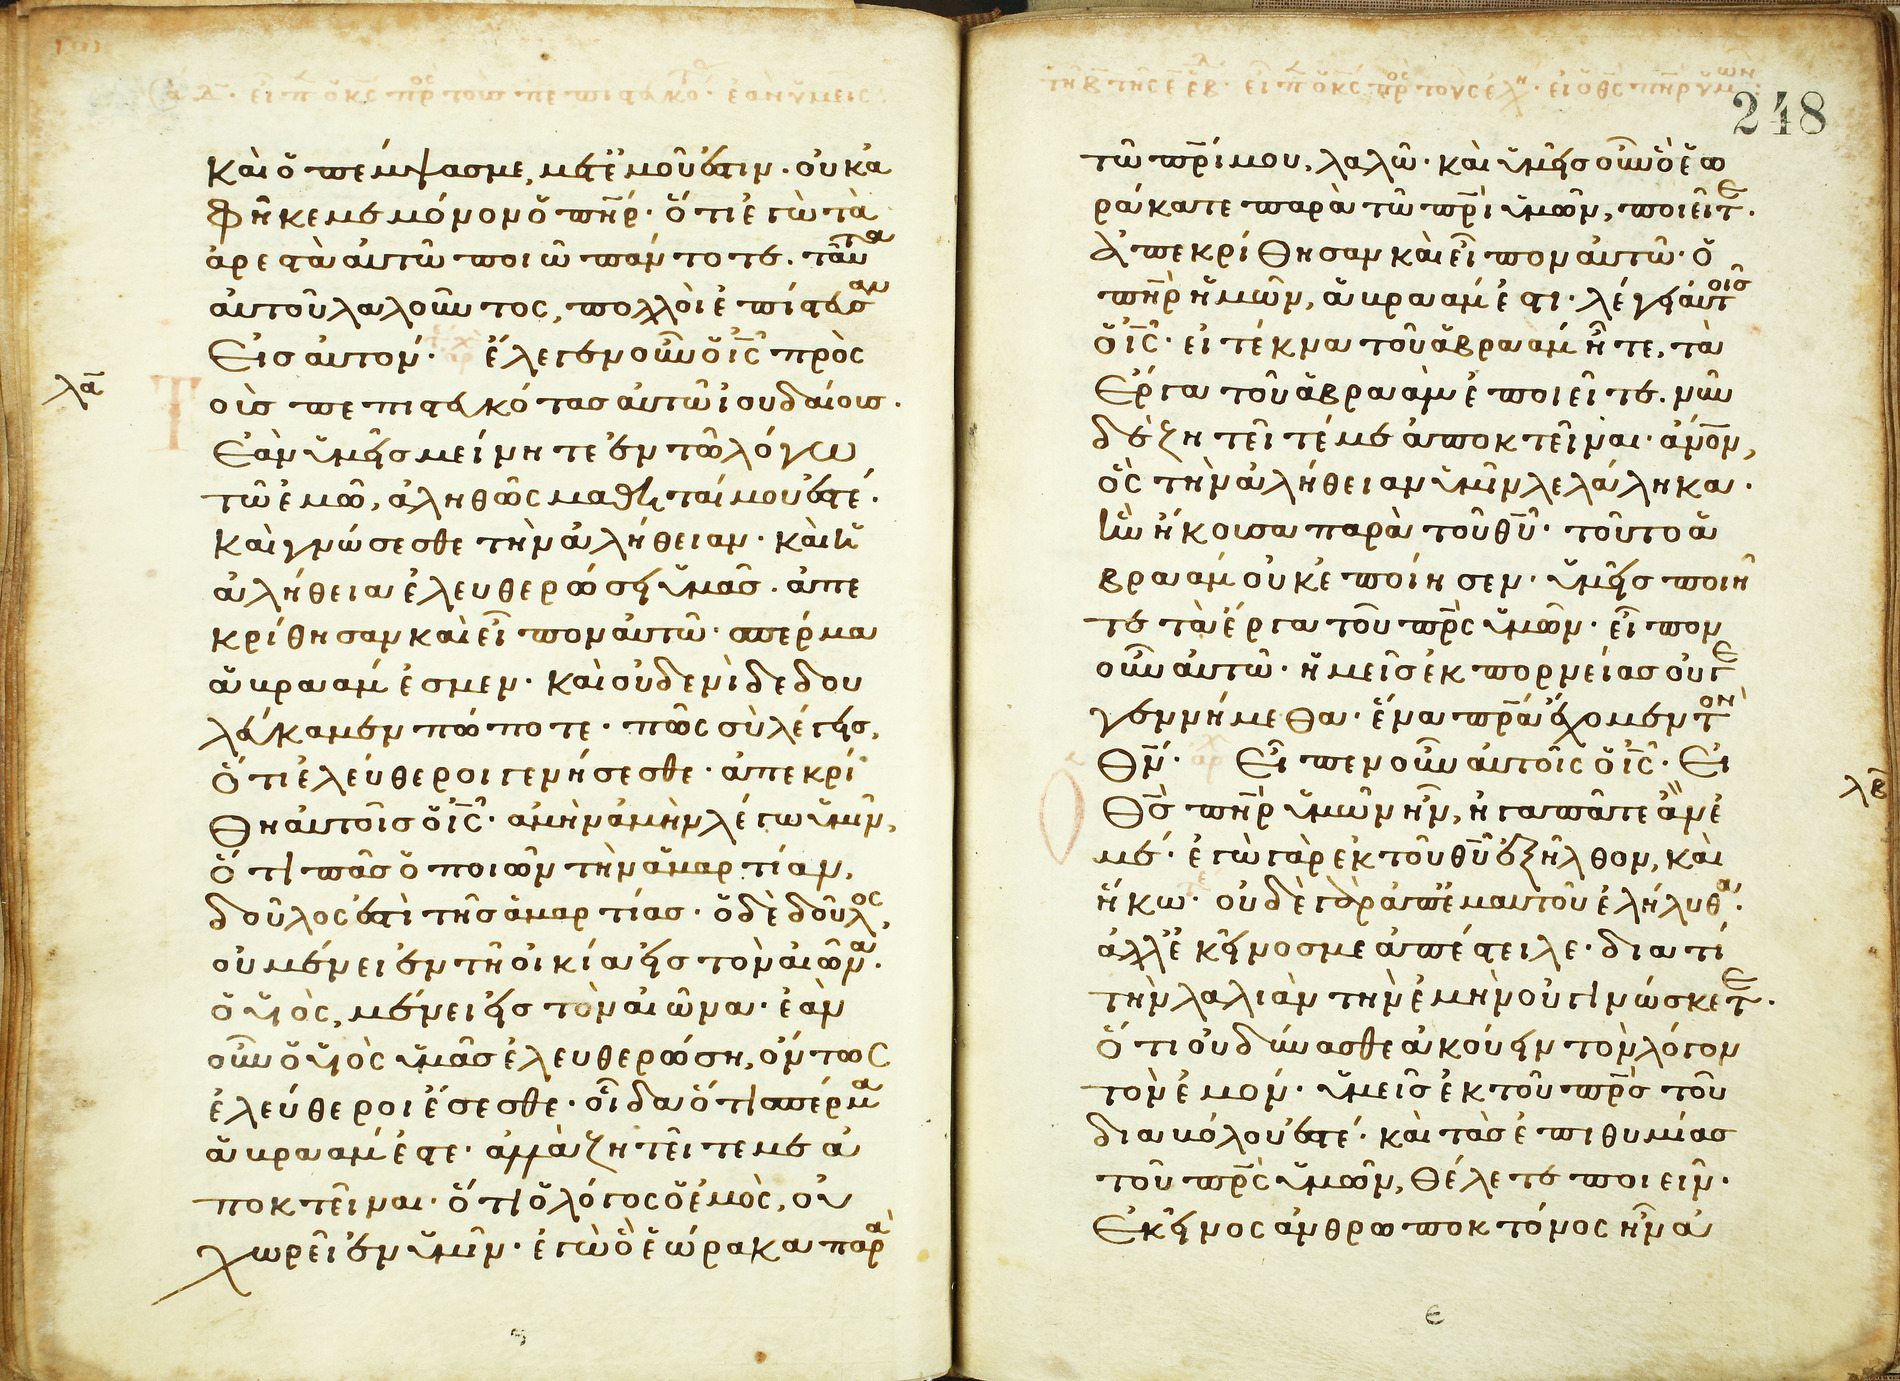 καὶ ὁ πέμψας με, μετ ἐμοῦ ἐστιν · οὐκ ἀ
φῆκε με μόνον ὁ πη̅ρ · ὅτι ἐγὼ τὰ
ἀρεστὰ αυτῶ ποιῶ πάντοτε . ταῦτα
αυτοῦ λαλοῦντος, πολλοὶ ἐπίστευσαν
Εἰς αυτόν · ἔλεγεν οὖν ὁ ι̅ς̅ πρὸς
Τοὺς πεπιστευκότας αυτῶ ἰουδαίους .
λα
Εὰν ὑμεῖς μείνητε ἐν τῶ λόγω
τῶ ἐμῶ, ἀληθῶς μαθηταί μου ἐστέ .
Καὶ γνώσεσθε τὴν ἀλήθειαν · καὶ ἡ
ἀλήθεια ἐλευθερώσει ὑμᾶς . ἀπε
κρίθησαν καὶ εἶπον αυτῶ · σπέρμα
ἁβρααμ ἐσμεν · καὶ οὐδενὶ δεδου
λεύκαμεν πώποτε · πῶς σὺ λέγεις,
Ὅτι ἐλεύθεροι γενήσεσθε · ἀπεκρί
Θη αυτοῖς ὁ ι̅ς̅ · ἀμὴν ἀμὴν λέγω ὑμῖν,
Ὅτι πᾶς ὁ ποιῶν τὴν ἁμαρτίαν,
δοῦλος ἐστὶ τῆς ἁμαρτίας · ὁ δὲ δοῦλος,
οὐ μένει ἐν τῆ οἰκία εἰς τὸν αἰῶνα .
ὁ υἱὸς, μένει εἰς τὸν αἰῶνα · ἐὰν
οὖν ὁ υἱὸς ὑμᾶς ἐλευθερώση, ὄντως
ἐλεύθεροι ἔσεσθε · οἶδα ὅτι σπέρμα
ἁβρααμ ἐστε · ἀλλὰ ζητεῖτε με ἀ
ποκτεῖναι · ὅτι ὁ λόγος ὁ ἐμὸς, οὐ
χωρεῖ ἐν ὑμῖν · ἐγὼ ὃ ἑώρακα παρὰ
248
τῶ πρ̅ί μου, λαλῶ · καὶ ὑμεῖς οὖν ὃ ἑω
ράκατε παρὰ τῶ πρ̅ὶ ὑμῶν, ποιεῖτε .
Ἀπεκρίθησαν καὶ εἶπον αυτῶ · ὁ
πη̅ρ ἡμῶν, ἁβρααμ ἐστι · λέγει αυτοῖς
ὁ ι̅ς̅ · εἰ τέκνα τοῦ ἁβρααμ ἦτε, τὰ
Εργα τοῦ ἁβρααμ ἐποιεῖτε . νῦν
δὲ ζητεῖτέ με ἀποκτεῖναι · α̅νο̅ν,
ὃς τὴν ἀλήθειαν ὑμῖν λελάληκα .
ἣν ἤκουσα παρὰ τοῦ θ̅υ̅ · τοῦτο ἁ
βρααμ οὐκ ἐποίησεν · ὑμεῖς ποιεῖ
τε τὰ ἔργα τοῦ πρ̅ς ὑμῶν · εἶπον
οὖν αυτῶ · ἡμεῖς ἐκ πορνείας οὐ
γεννήμεθα · ἕνα πρ̅α ἔχομεν τὸν
Θ̅ν̅ · Εἶπεν οὖν αυτοῖς ὁ ι̅ς̅ · Εἰ
λβ
ὁ Θ̅ς̅ πη̅ρ ὑμῶν ἦν, ἠγαπᾶτε ἂν ἐ
μέ · ἐγὼ γὰρ ἐκ τοῦ θ̅υ̅ ἐξῆλθον, καὶ
ἥκω · οὐδὲ γὰρ ἀπ ἐμαυτοῦ ἐλήλυθα .
ἀλλ ἐκεῖνος με ἀπέστειλε · διατί
τὴν λαλιὰν τὴν ἐμὴν οὐ γινώσκετε .
Ὅτι οὐ δύνασθε ἀκούειν τὸν λόγον
τὸν ἐμόν · ὑμεῖς ἐκ τοῦ πρ̅ς τοῦ
διαβόλου ἐστέ · καὶ τὰς ἐπιθυμίας
τοῦ πρ̅ς ὑμῶν, θέλετε ποιεῖν .
Ἐκεῖνος ἀνθρωποκτόνος ἦν ἀ
ε